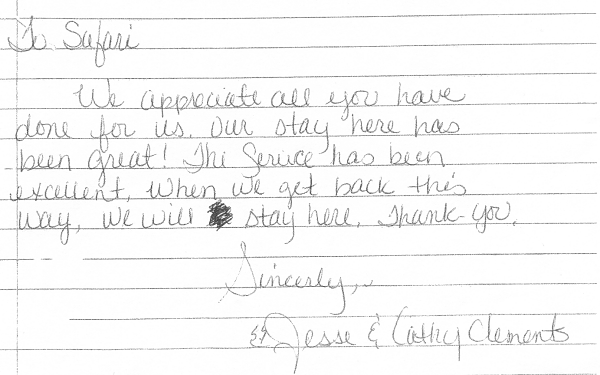 To Safari
We appreciate all you have
done for us. Our stay here has
been great! The Service has been
excellent. When we get back this
way, we will stay here. Thank-you.
Sincerly,
Jesse & Cathy Clements